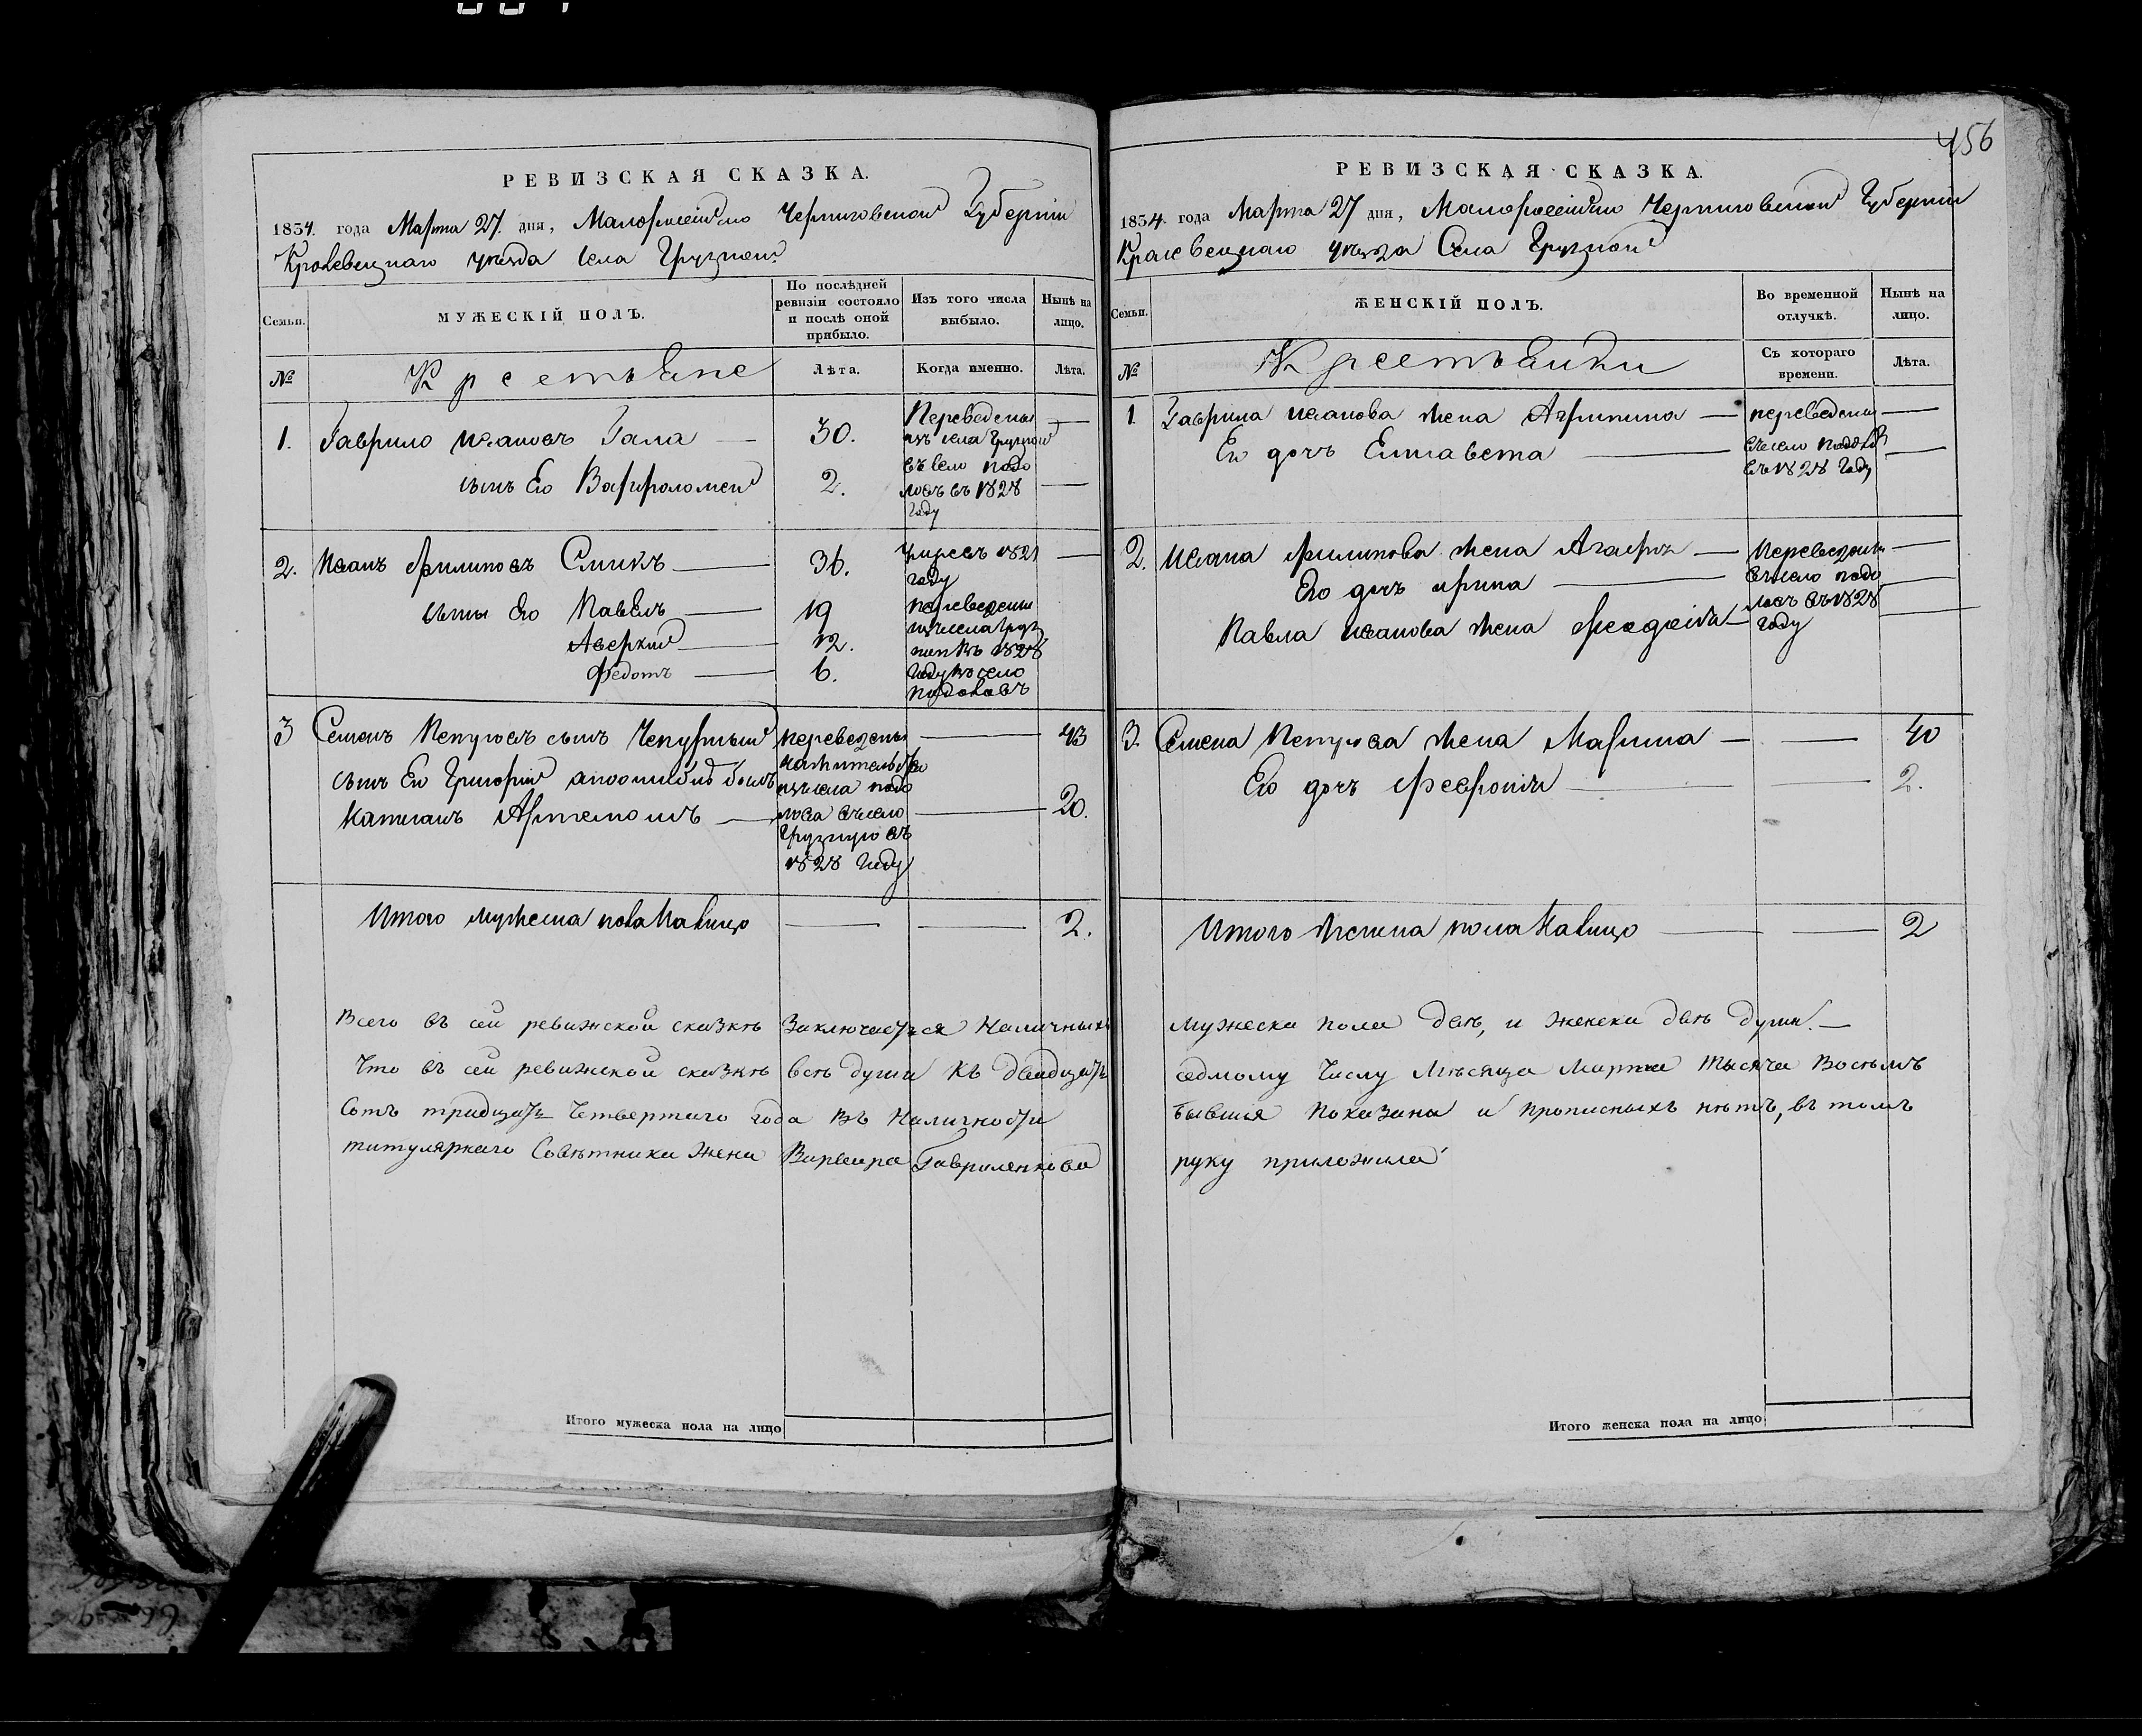 456
РЕВИЗСКАЯ СКАЗКА.
1834. года Марта 27. дня, Малороссійско Черниговской Губерніи
Кролевецкаго уезда Села Грузкой
Семьи.
МУЖЕСКІЙ ПОЛЪ.
По послѣдней ревизіи состояло и послѣ оной прибыло.
Изъ того числа выбыло.
Нынѣ на лицо.
№
Крестьяне
Лѣта.
Когда именно.
Лѣта.
1. Гаврило Ивановъ Гала — 30.
Переведены
изъ села Грузкой
въ село Подо
ловъ въ 1828
году
сынъ Его Варфроломей 2.
2. Иванъ Филиповъ Сликъ — 36.
Умре въ 1821
году
сыны Его Павелъ — 19
Аверкій — 12.
Федотъ — 6.
переведены
изъ села Груз
1828
году въ село
Подоловъ
3 Семенъ Петровъ сынъ Чепурный — 43
сынъ Его Григорій
Артемомъ — 20.
переведены
изъ села Подо
лова въ село
Грузкую въ
1828 году
Итого мужеска пола налицо — — 2.
Всего въ сей ревижской сказкѣ Заключается Наличныхъ
Что въ сей ревижской сказкѣ всѣ души къ двадцать
Сотъ тридцать Четвертаго года Въ Наличности
титулярнаго Совѣтника жена Варвара Гавриленкова
Итого мужеска пола на лицо
РЕВИЗСКАЯ СКАЗКА.
1834. года Марта 27 дня, Малороссійско Черниговской Губерніи
Кролевецкаго уезда Села Грузкой
Семьи.
ЖЕНСКІЙ ПОЛЪ.
Во временной отлучкѣ.
Нынѣ на лицо.
№
Крестьянки
Съ котораго времени.
Лѣта.
1. Гаврила Иванова жена Агрипина —
Его дочъ Елисавета —
переведены
въ село Подоловъ
въ 1828 году
2. Ивана Филипова жена Агафъя —
Его дочъ Ирина —
Павла Иванова жена Феодосія —
Переведены
въ село Подо
ловъ въ 1828
году
3. Семена Петрова жена Марина — — 40
Его дочъ Феврониія — — 2.
Итого женска пола налицо — — 2
мужеска пола двѣ, и женска двѣ души. —
седмому Числу Мѣсяца Марта Тысяча Восемъ
бывшія показаны и прописныхъ нѣтъ, въ томъ
руку приложила
Итого женска пола на лицо